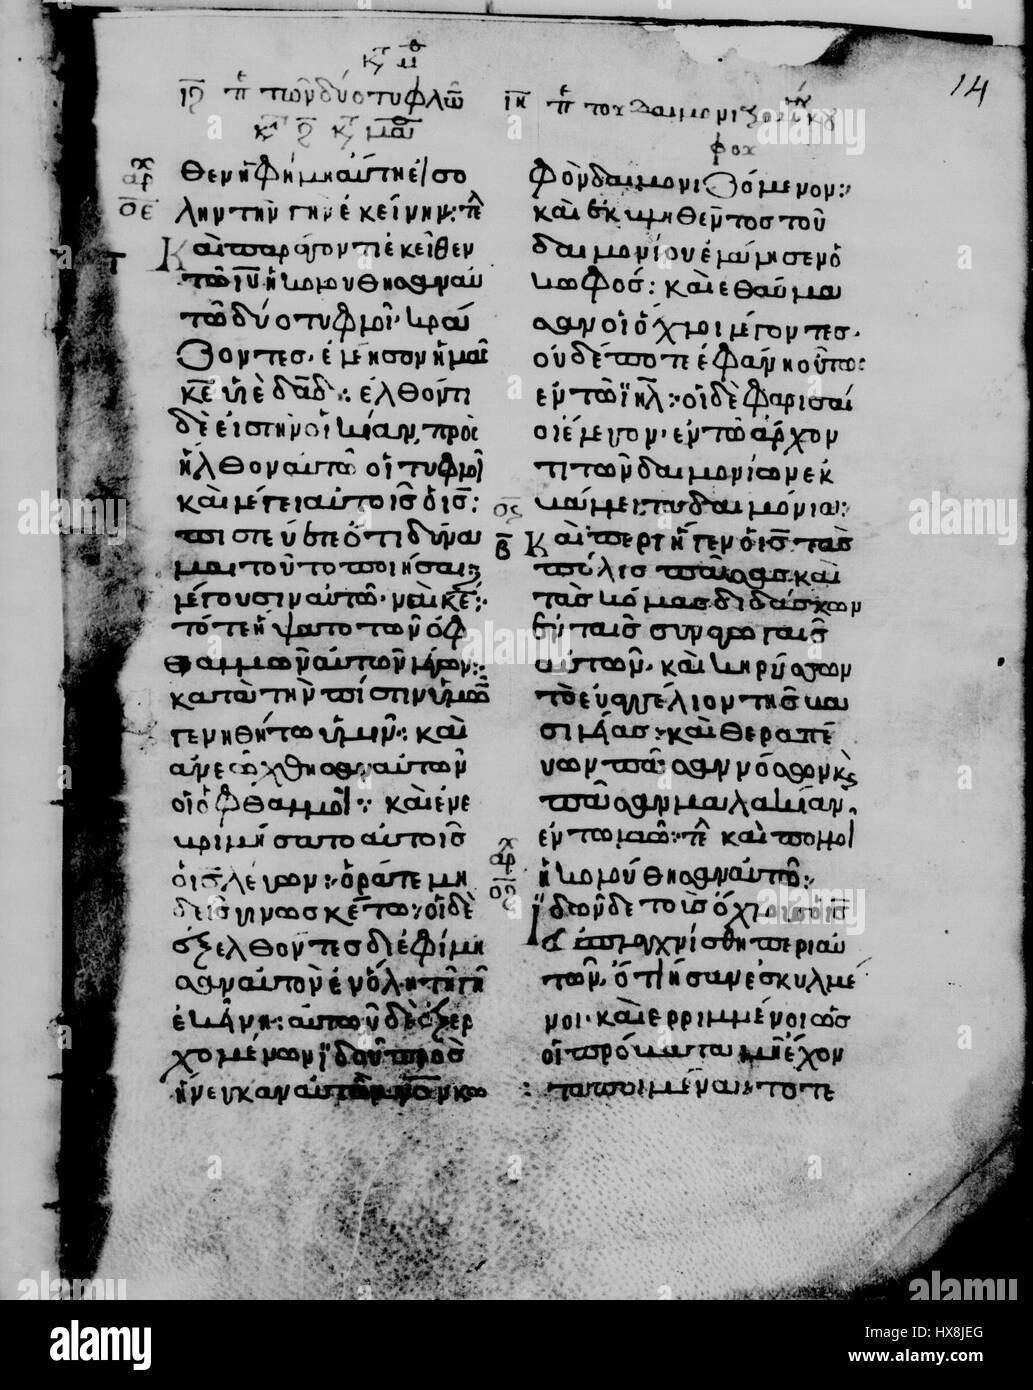 14
ιθ π των δύο τυφλῶ
ιη π του δαιμονιζο κου
θεν ἡ φήμη αὕτη εἰσ ὅ
λην τὴν γῆν ἐκείνην:
Καὶ παράγοντι ἐκεῖθεν
τῶ ιυ ἠκολούθησαν αὐ
τῶ δύο τυφλοί· κρά
ζοντεσ· ἐλέησον ἡμᾶσ
κε ὑιὲ δαδ: ἐλθόντι
δὲ εἰσ τὴν οἰκίαν, προσ
ῆλθον αὐτῶ οἱ τυφλοὶ
καὶ λέγει αὐτοῖσ ὁ ισ:
πιστεύετε ὅτι δύνα
μαι τοῦτο ποιῆσαι;
λέγουσιν αὐτῶ· ναὶ κε:
τότε ἥψατο τῶν ὀφ
θαλμῶν αὐτῶν λέγων:
κατὰ τὴν πίστιν ὑμῶν
γενηθήτω ὑμῖν: καὶ
ἀνεώχθησαν αὐτῶν
οἱ ὀφθαλμοὶ: καὶ ἐνε
βριμήσατο αὐτοῖσ
ὁ ισ λέγων: ὁρᾶτε μη
δεὶσ γινωσκέτω: οἱ δὲ
ἐξελθόντεσ διεφήμη
σαν αὐτὸν ἐν ὅλη τῆ γῆ
ἐκείνη: αὐτῶν δὲ ἐξερ
χομένων ἰδοῦ προσ
ήνεγκαν αὐτῶ ανον κω
φὸν δαιμονιζόμενον:
καὶ ἐκβληθέντοσ τοῦ
δαιμονίου ἐλάλησεν ὁ
κωφόσ: καὶ ἐθαύμα
σαν οἱ ὄχλοι λέγοντεσ·
οὐδέποτε ἐφάνη οὕτωσ
ἐν τῶ ιηλ: οἱ δὲ φαρισαῖ
οι ἔλεγον· ἐν τῶ ἄρχον
τι τῶν δαιμονίων ἐκ
βάλλει τὰ δαιμόνια:
Καὶ περιῆγεν ὁ ισ τὰσ
πόλισ πάσασ καὶ
τὰσ κώμασ διδάσκων
ἐν ταῖσ συναγωγαῖσ
αὐτῶν· καὶ κηρύσσων
τὸ εὐαγγέλιον τῆσ βα
σιλείασ: καὶ θεραπέ
υων πᾶσαν νόσον κὲ
πᾶσαν μαλακίαν,
ἐν τῶ λαῶ: καὶ πολλοὶ
ἠκολούθησαν αὐτῶ:
Ἰδὼν δὲ τοὺσ ὄχλουσ ὁ ισ
ἐσπλαχνίσθη περὶ αὐ
τῶν, ὅτι ἦσαν ἐσκυλμέ
νοι· καὶ ἐρριμμένοι ὡσ
οἱ πρόβατα μὴ ἔχον
τα ποιμένα: τότε